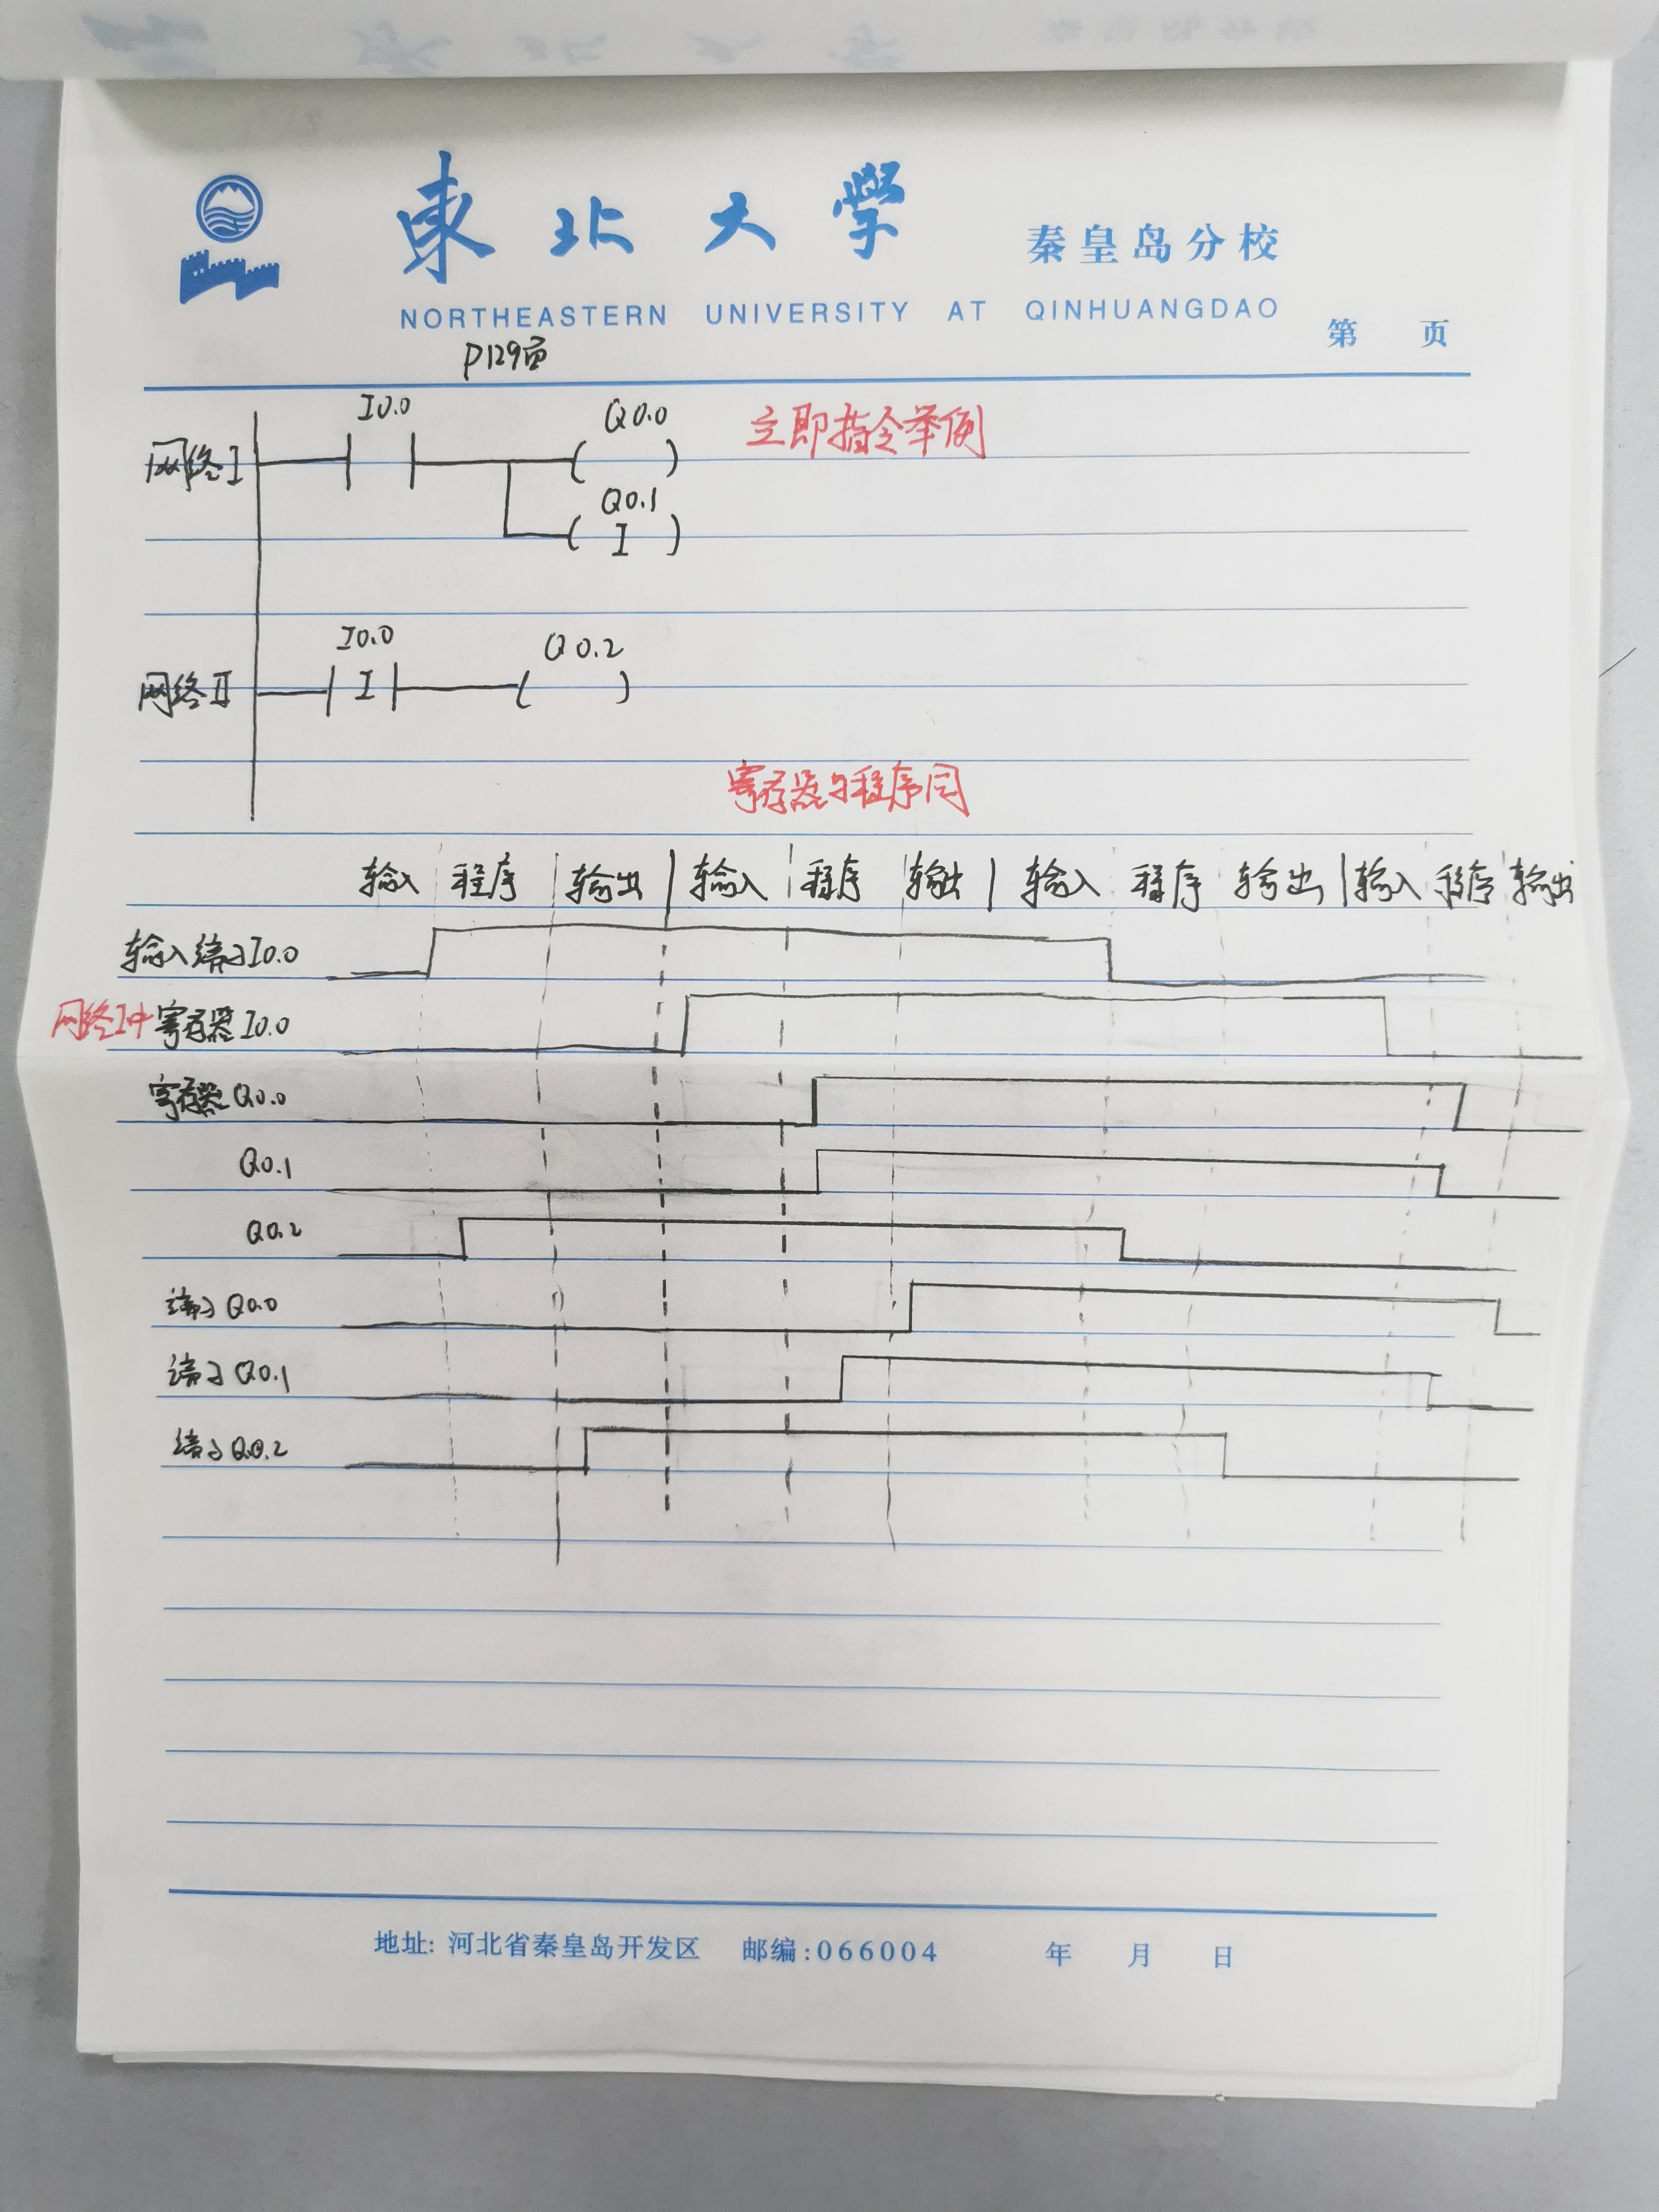 東北大學 秦皇岛分校
NORTHEASTERN UNIVERSITY AT QINHUANGDAO
第 页
P129页
I0.0 Q0.0 立即指令举例
网络I ( )
Q0.1
( I )
I0.0 Q0.2
网络II I ( )
寄存器与程序同
输入 程序 输出 输入 程序 输出 输入 程序 输出 输入 程序 输出
输入端子I0.0
网络I中 寄存器I0.0
寄存器Q0.0
Q0.1
Q0.2
端子Q0.0
端子Q0.1
端子Q0.2
地址: 河北省秦皇岛开发区 邮编:066004 年 月 日